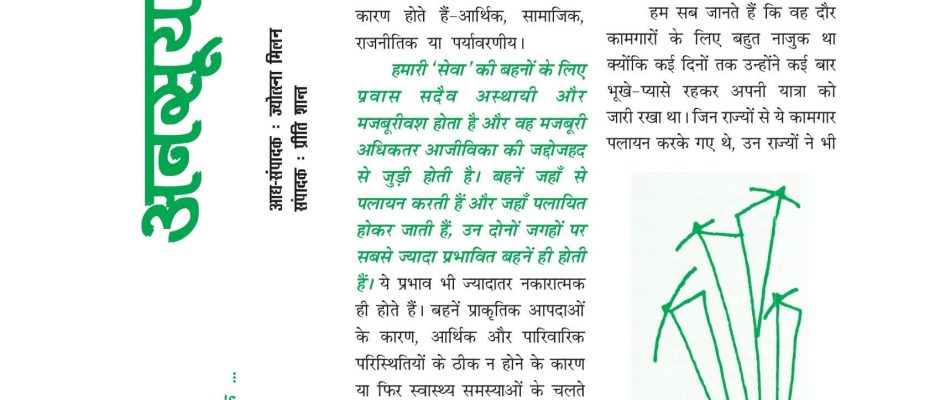 अनसूया
आद्य-संपादक : ज्योत्स्ना मिलन
संपादक : प्रीति शान्त
कारण होते हैं–आर्थिक, सामाजिक,
राजनीतिक या पर्यावरणीय।
हमारी ‘सेवा’ की बहनों के लिए
प्रवास सदैव अस्थायी और
मजबूरीवश होता है और वह मजबूरी
अधिकतर आजीविका की जद्दोजहद
से जुड़ी होती है। बहनें जहाँ से
पलायन करती हैं और जहाँ पलायित
होकर जाती हैं, उन दोनों जगहों पर
सबसे ज्यादा प्रभावित बहनें ही होती
हैं। ये प्रभाव भी ज्यादातर नकारात्मक
ही होते हैं। बहनें प्राकृतिक आपदाओं
के कारण, आर्थिक और पारिवारिक
परिस्थितियों के ठीक न होने के कारण
या फिर स्वास्थ्य समस्याओं के चलते
हम सब जानते हैं कि वह दौर
कामगारों के लिए बहुत नाजुक था
क्योंकि कई दिनों तक उन्होंने कई बार
भूखे-प्यासे रहकर अपनी यात्रा को
जारी रखा था। जिन राज्यों से ये कामगार
पलायन करके गए थे, उन राज्यों ने भी